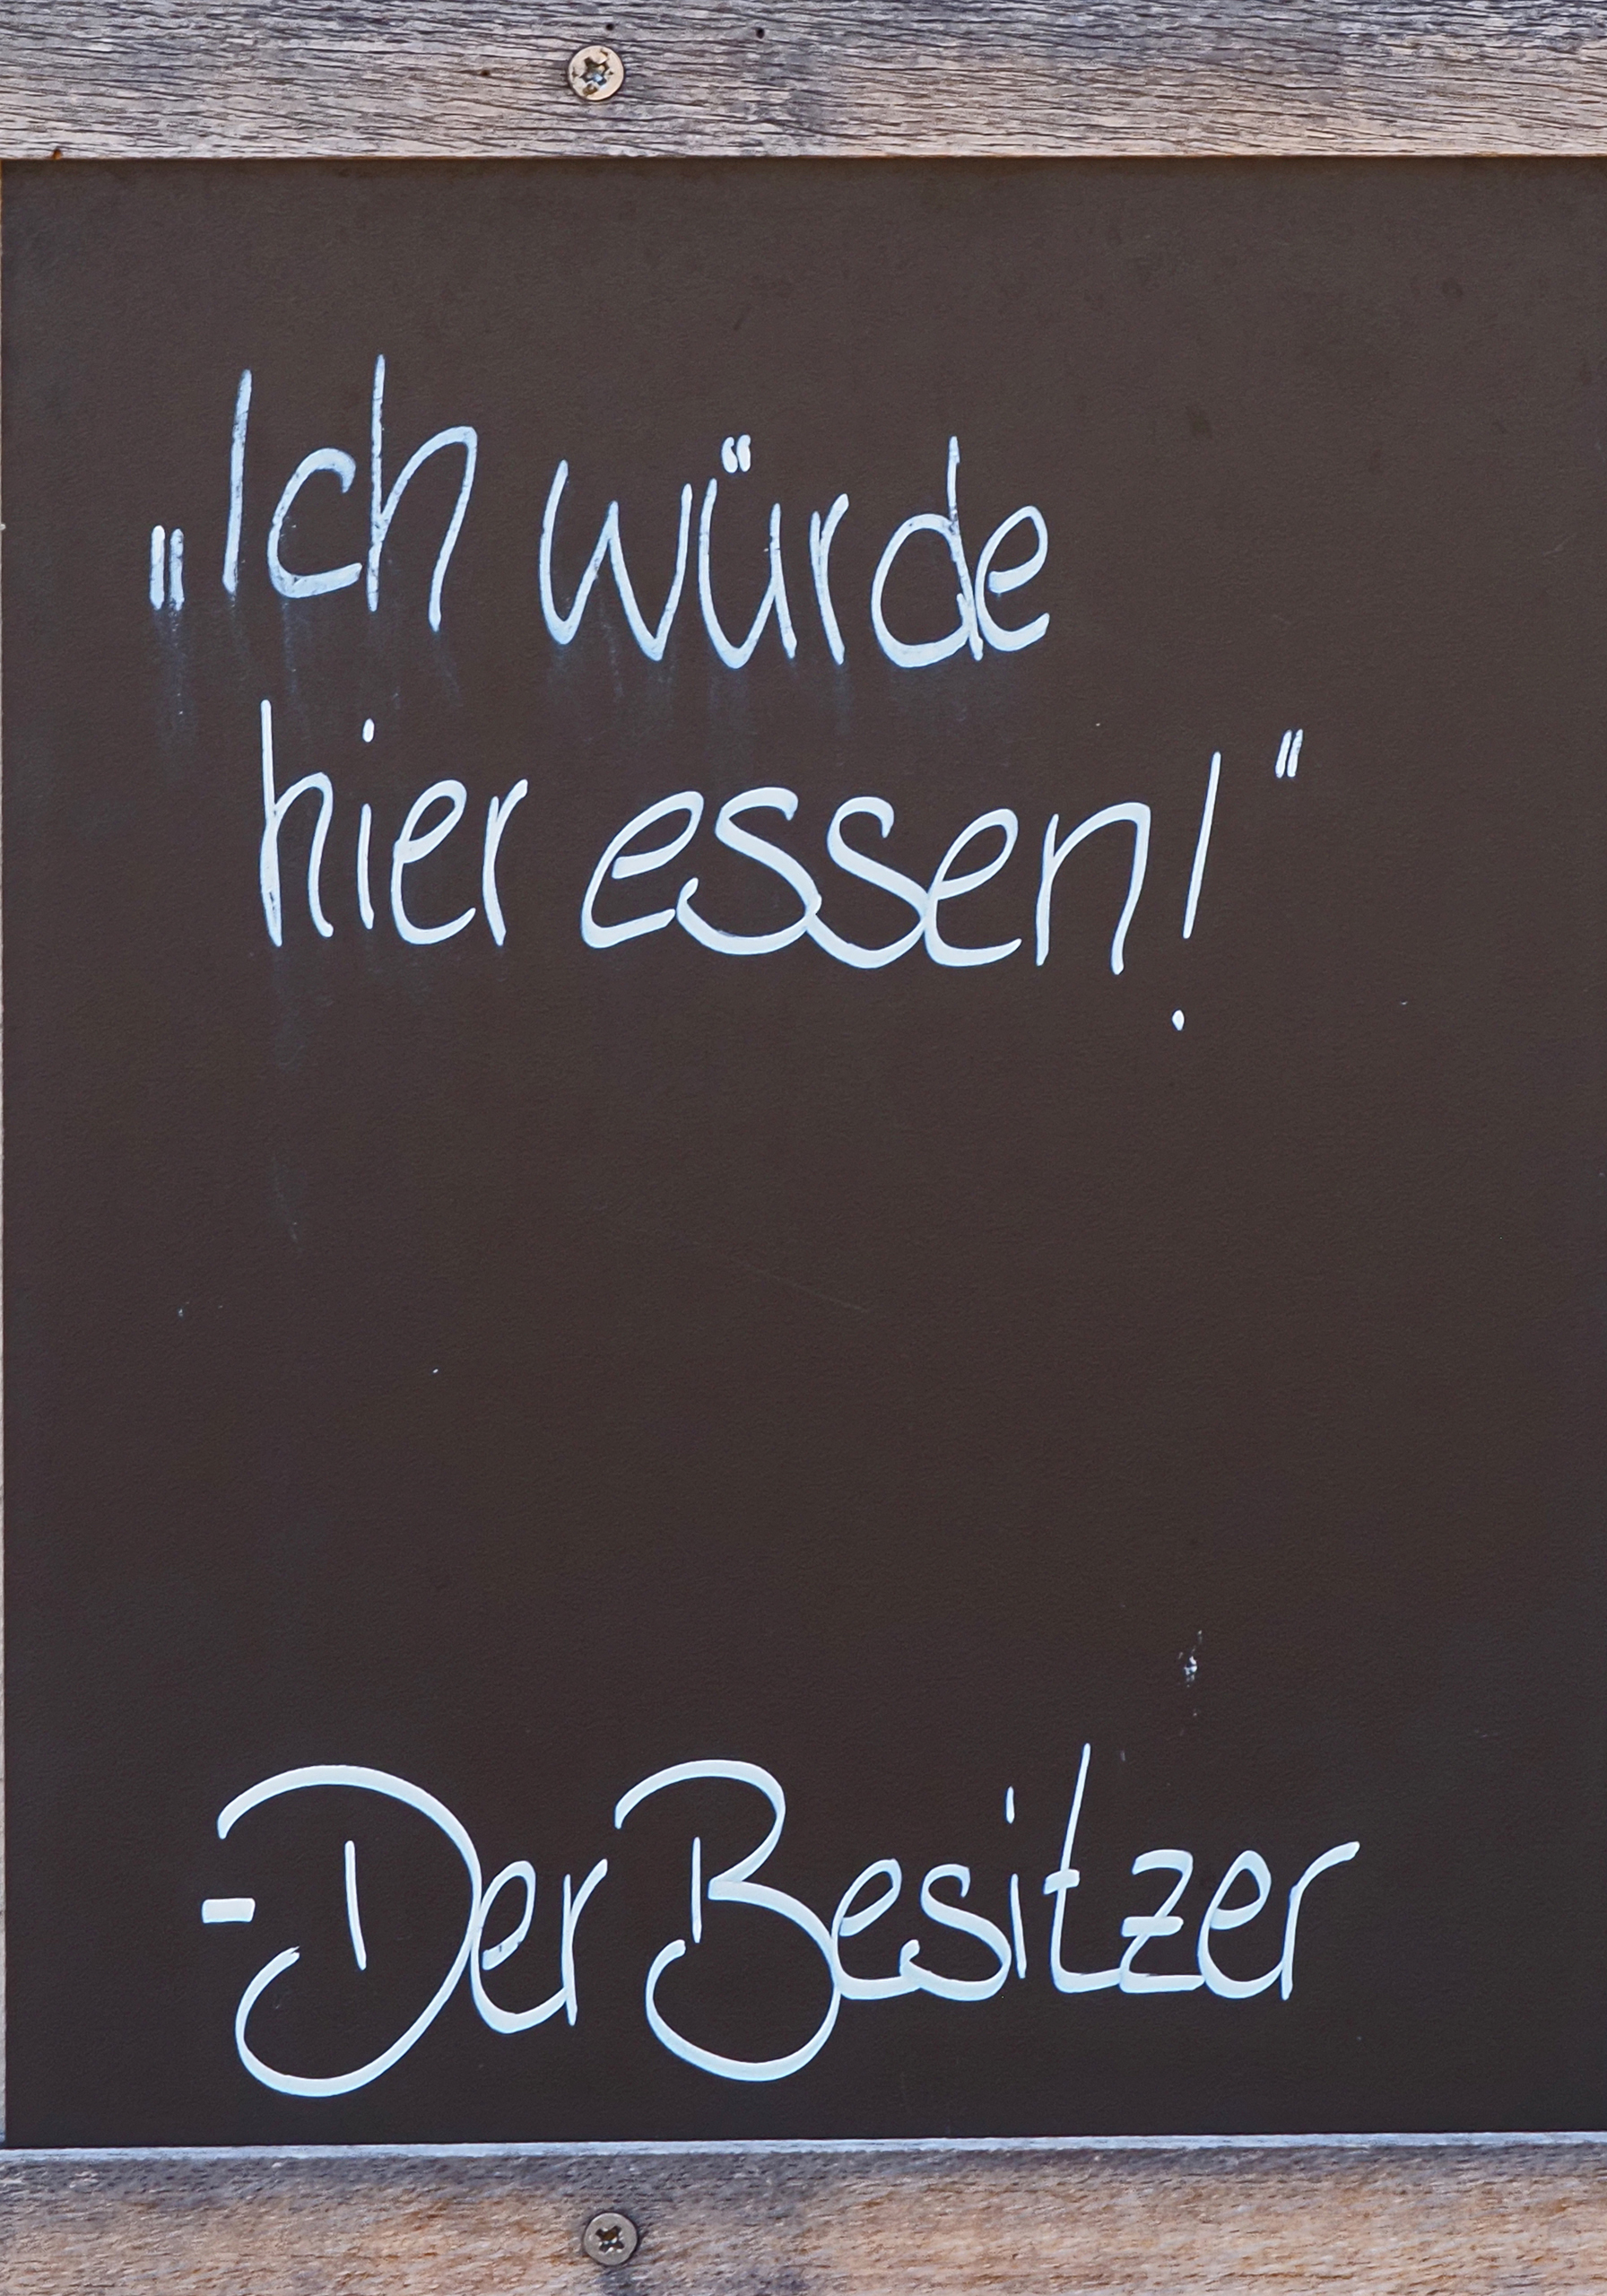 „Ich würde
hier essen!"
-Der Besitzer